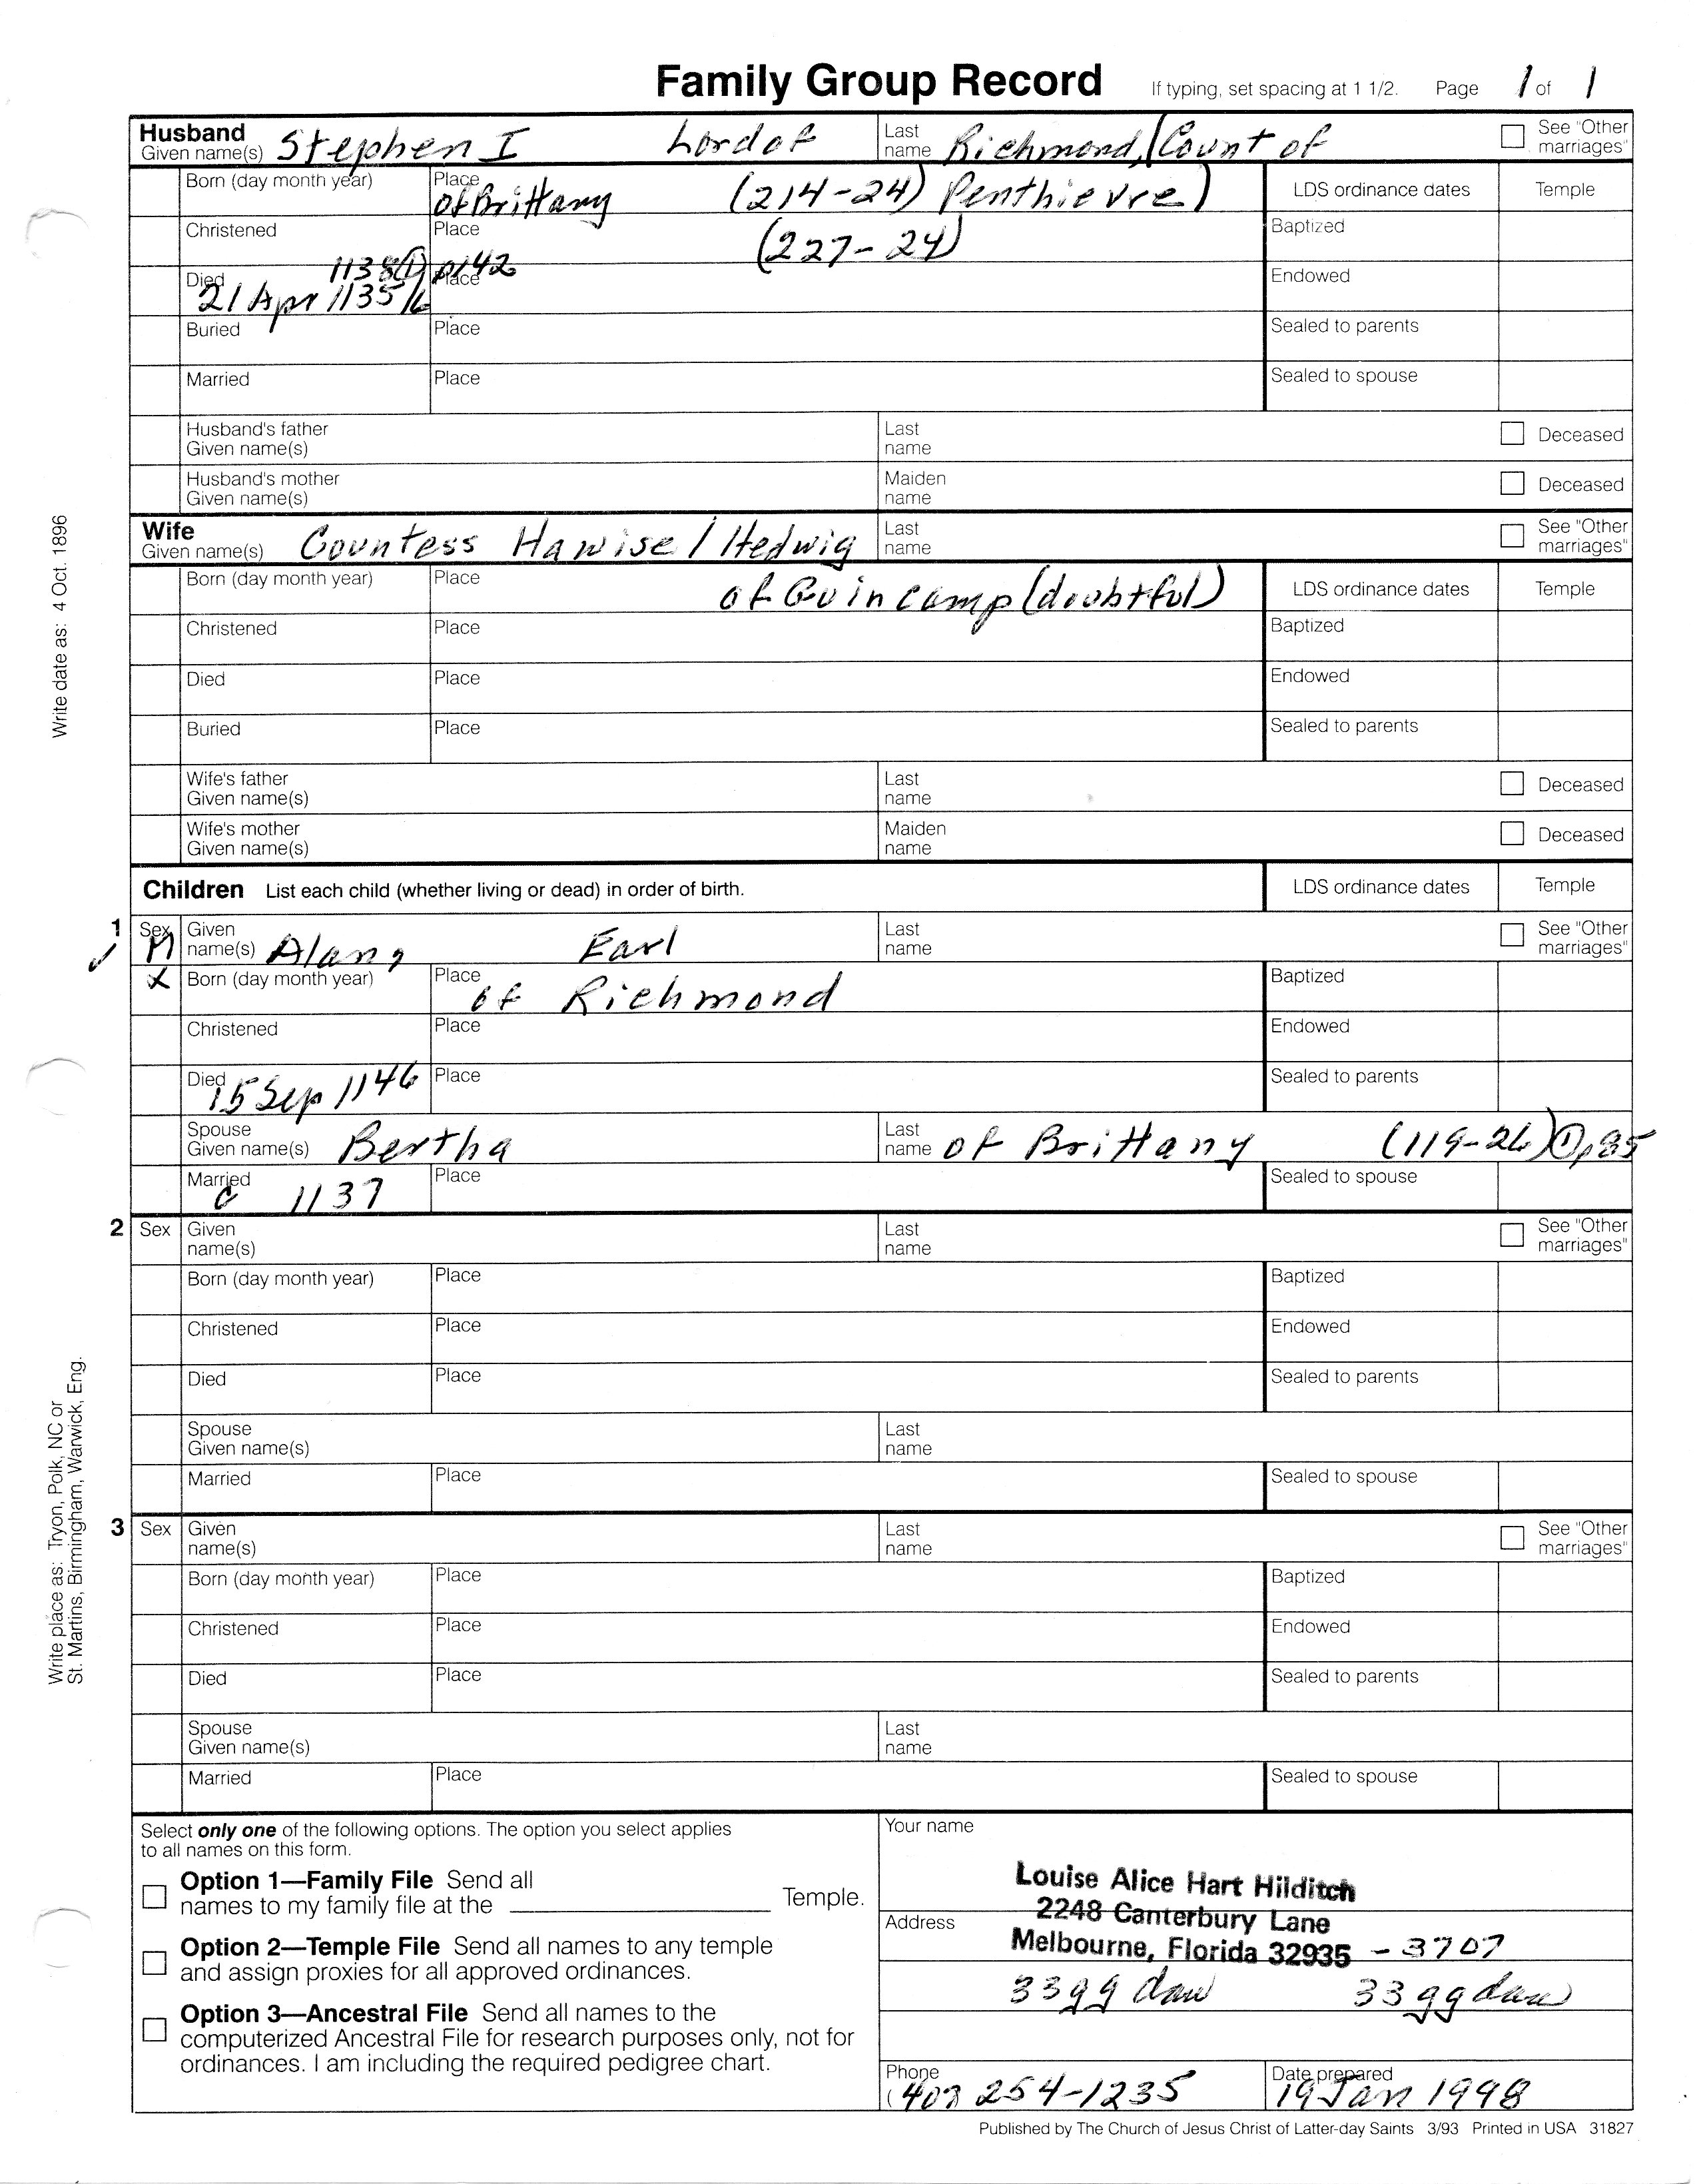 Family Group Record If typing, set spacing at 1 1/2. Page 1 of 1
Husband Given name(s) Stephen I Lord of Last name Richmond, (Count of See "Other marriages"
Born (day month year) Place of Brittany (214-24) Penthievre) LDS ordinance dates Temple
Christened Place (227-24) Baptized
Died 1138(1) p142 21 Apr 1135/6 Place Endowed
Buried Place Sealed to parents
Married Place Sealed to spouse
Husband's father Given name(s) Last name Deceased
Husband's mother Given name(s) Maiden name Deceased
Wife Given name(s) Countess Hawise / Hedwig Last name See "Other marriages"
Born (day month year) Place of Guincamp (doubtful) LDS ordinance dates Temple
Christened Place Baptized
Died Place Endowed
Buried Place Sealed to parents
Wife's father Given name(s) Last name Deceased
Wife's mother Given name(s) Maiden name Deceased
Children List each child (whether living or dead) in order of birth. LDS ordinance dates Temple
1 Sex M Given name(s) Alan, Earl Last name See "Other marriages"
X Born (day month year) Place of Richmond Baptized
Christened Place Endowed
Died 15 Sep 1146 Place Sealed to parents
Spouse Given name(s) Bertha Last name of Brittany (119-26) (1)p85
Married c 1137 Place Sealed to spouse
2 Sex Given name(s) Last name See "Other marriages"
Born (day month year) Place Baptized
Christened Place Endowed
Died Place Sealed to parents
Spouse Given name(s) Last name
Married Place Sealed to spouse
3 Sex Given name(s) Last name See "Other marriages"
Born (day month year) Place Baptized
Christened Place Endowed
Died Place Sealed to parents
Spouse Given name(s) Last name
Married Place Sealed to spouse
Select only one of the following options. The option you select applies
to all names on this form.
Option 1—Family File Send all
names to my family file at the Temple.
Option 2—Temple File Send all names to any temple
and assign proxies for all approved ordinances.
Option 3—Ancestral File Send all names to the
computerized Ancestral File for research purposes only, not for
ordinances. I am including the required pedigree chart.
Your name
Louise Alice Hart Hilditch
Address 2248 Canterbury Lane
Melbourne, Florida 32935 - 3707
33 gg dau 33 gg dau
Phone (407 254-1235 Date prepared 19 Jan 1998
Published by The Church of Jesus Christ of Latter-day Saints 3/93 Printed in USA 31827
Write date as: 4 Oct. 1896
Write place as: Tryon, Polk, NC or
St. Martins, Birmingham, Warwick, Eng.